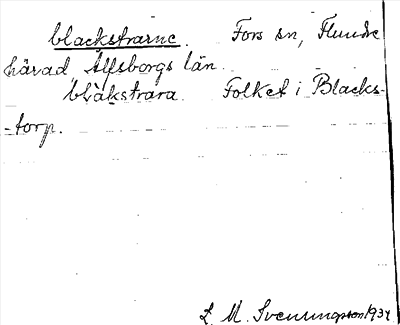 blackstrarne. Fors sn, Flundre
härad, Älfsborgs län.
bläkstrara. Folket i Blacks-
-torp.
L. M. Svenungsson 1934